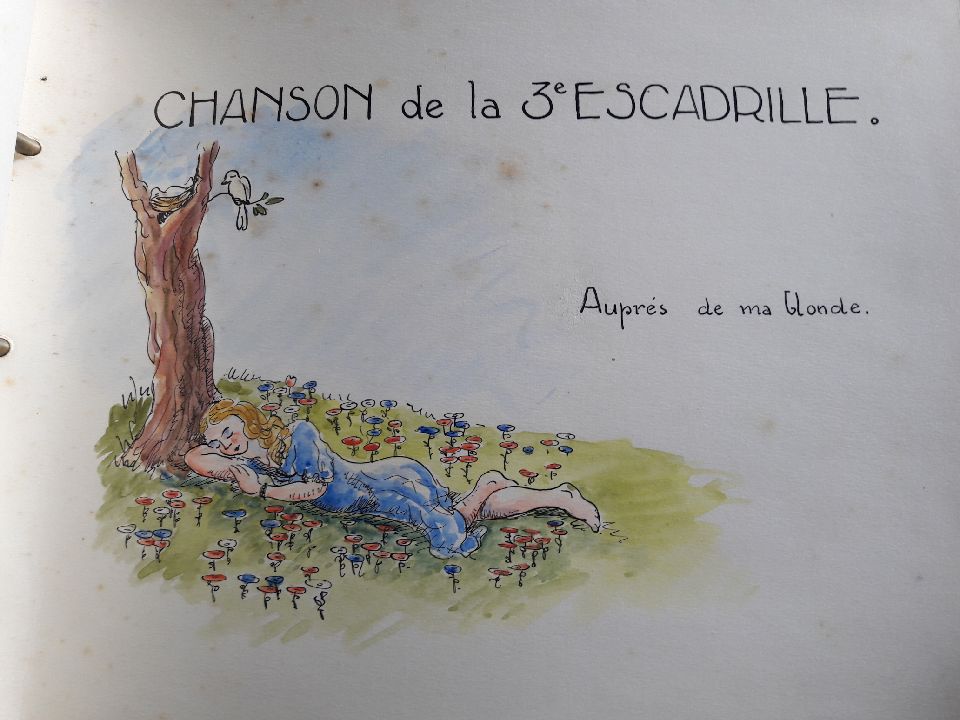 CHANSON de la 3e ESCADRILLE.
Auprés de ma blonde.